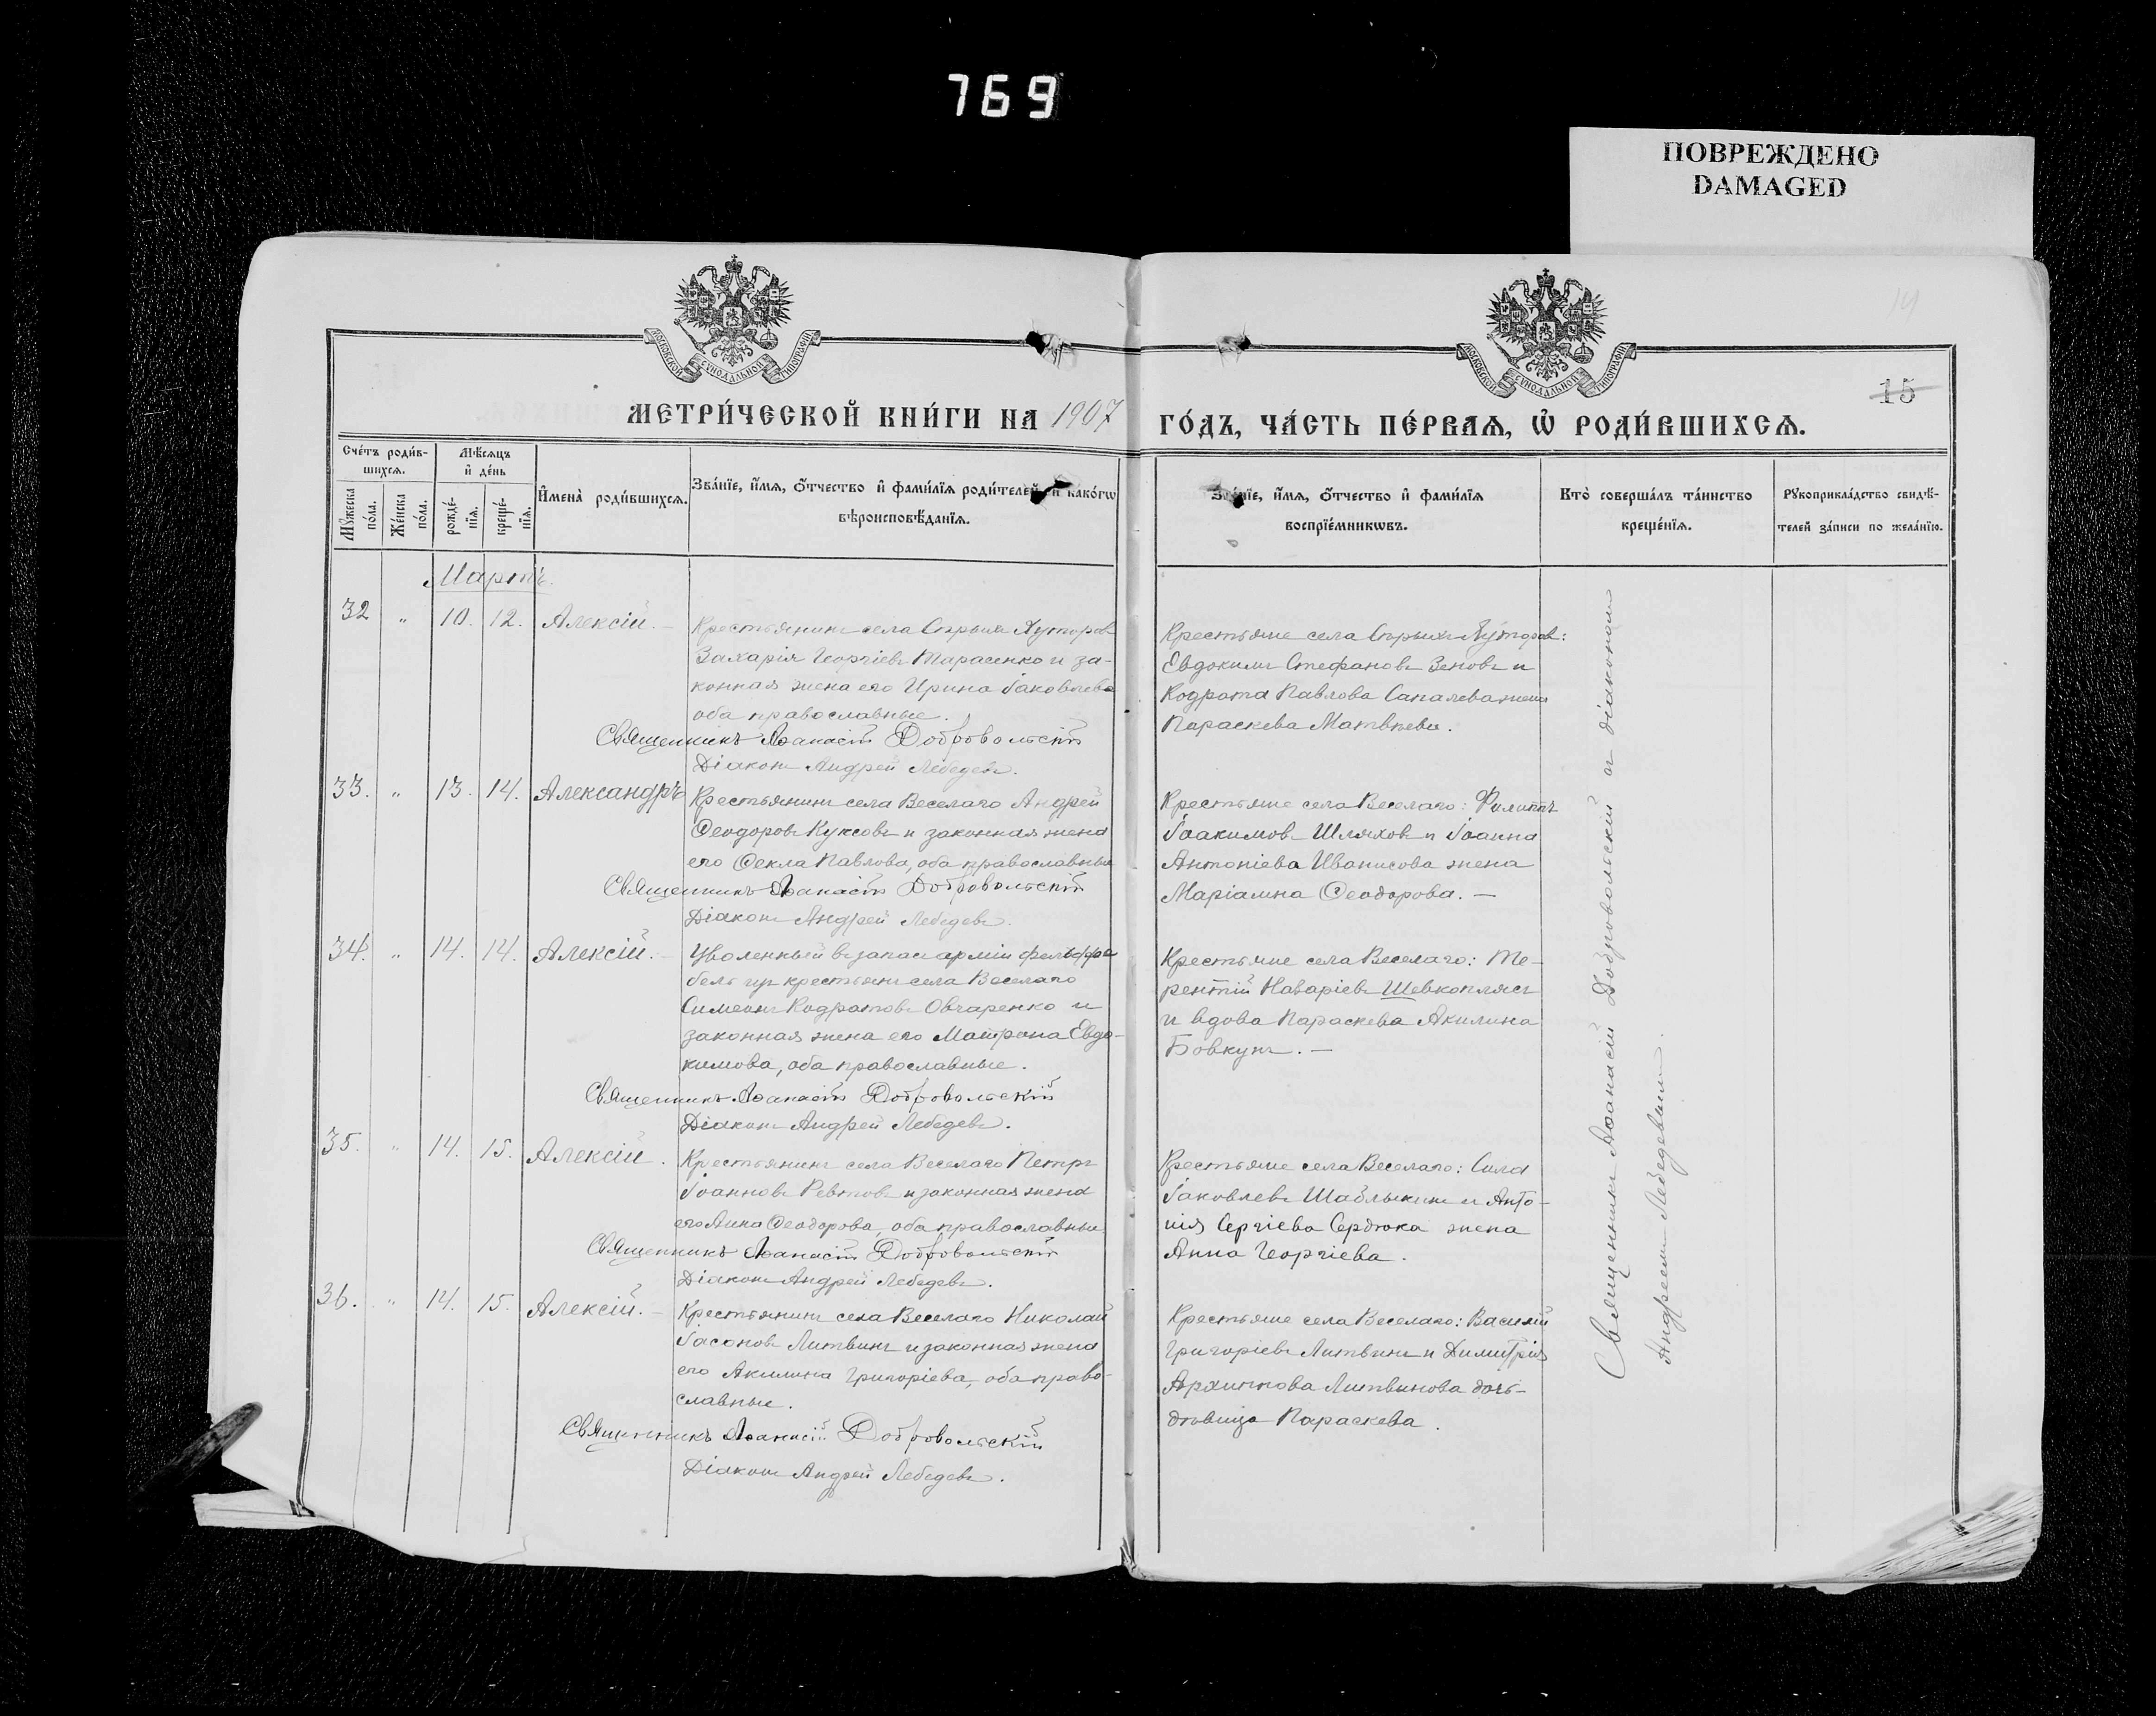 769
ПОВРЕЖДЕНО
DAMAGED
МОСКОВСКОЙ СѴНОДАЛЬНОЙ ТИПОГРАФІИ
МОСКОВСКОЙ СѴНОДАЛЬНОЙ ТИПОГРАФІИ
14
15
МЕТРИ́ЧЕСКОЙ КНИ́ГИ НА 1907 ГО́ДЪ, ЧА́СТЬ ПЕ́РВАѦ, Ѡ҆ РОДИ́ВШИХСѦ.
Сче́тъ роди́в-
шихсѧ.
Мꙋ́жеска по́ла.
Же́нска по́ла.
Мѣ́сѧцъ
и҆ де́нь
рожде́-
нїѧ.
креще́-
нїѧ.
И҆мена̀ роди́вшихсѧ.
Зва́нїе, и҆́мѧ, ѻ҆́тчество и҆ фами́лїѧ роди́телей, и҆ како́гѡ
вѣроисповѣ́данїѧ.
Зва́нїе, и҆́мѧ, ѻ҆́тчество и҆ фами́лїѧ
воспрїе́мникѡвъ.
Кто̀ соверша́лъ та́инство
креще́нїѧ.
Рꙋкоприкла́дство свидѣ́-
телей за́писи по жела́нїю.
Мартъ.
32 " 10. 12. Алексій. —
Крестьянинъ села Старыхъ Хуторовъ
Захарія Георгіевъ Тарасенко и за-
конная жена его Ирина Іаковлева
оба православные.
Священникъ Аѳанасій Добровольскій
Діаконъ Андрей Лебедевъ.
Крестьяне села Старыхъ Хуторовъ:
Евдокимъ Стефановъ Зеновъ и
Кодрата Павлова Сапалева жена
Параскева Матвѣева.
33. " 13. 14. Александръ
Крестьянинъ села Веселаго Андрей
Ѳеодоровъ Куксовъ и законная жена
его Ѳекла Павлова, оба православные
Священникъ Аѳанасій Добровольскій
Діаконъ Андрей Лебедевъ.
Крестьяне села Веселаго: Филиппъ
Іоакимовъ Шляховъ и Іоанна
Антоніева Иванисова жена
Маріамна Ѳеодорова. —
34. " 14. 14. Алексій. —
Уволенный въ запасъ арміи фельдфе
бель изъ крестьянъ села Веселаго
Симеонъ Кодратовъ Овчаренко и
законная жена его Матрона Евдо-
кимова, оба православные.
Священникъ Аѳанасій Добровольскій
Діаконъ Андрей Лебедевъ.
Крестьяне села Веселаго: Те-
рентій Назаріевъ Шевкоплясъ
и вдова Параскева Акилина
Бовкунъ. —
35. " 14. 15. Алексій.
Крестьянинъ села Веселаго Петръ
Іоанновъ Ревтовъ и законная жена
его Анна Ѳеодорова, оба православные.
Священникъ Аѳанасій Добровольскій
Діаконъ Андрей Лебедевъ.
Крестьяне села Веселаго: Сила
Іаковлевъ Шаблыкинъ и Анто-
нія Сергіева Сердюка жена
Анна Георгіева.
36. " 14. 15. Алексій. —
Крестьянинъ села Веселаго Николай
Іасоновъ Литвинъ и законная жена
его Акилина Григоріева, оба право-
славные.
Священникъ Аѳанасій Добровольскій
Діаконъ Андрей Лебедевъ.
Крестьяне села Веселаго: Василій
Григоріевъ Литвинъ и Димитрія
Архиппова Литвинова дочь-
дѣвица Параскева.
Священникъ Аѳанасій Добровольскій и діакономъ
Андреемъ Лебедевымъ.